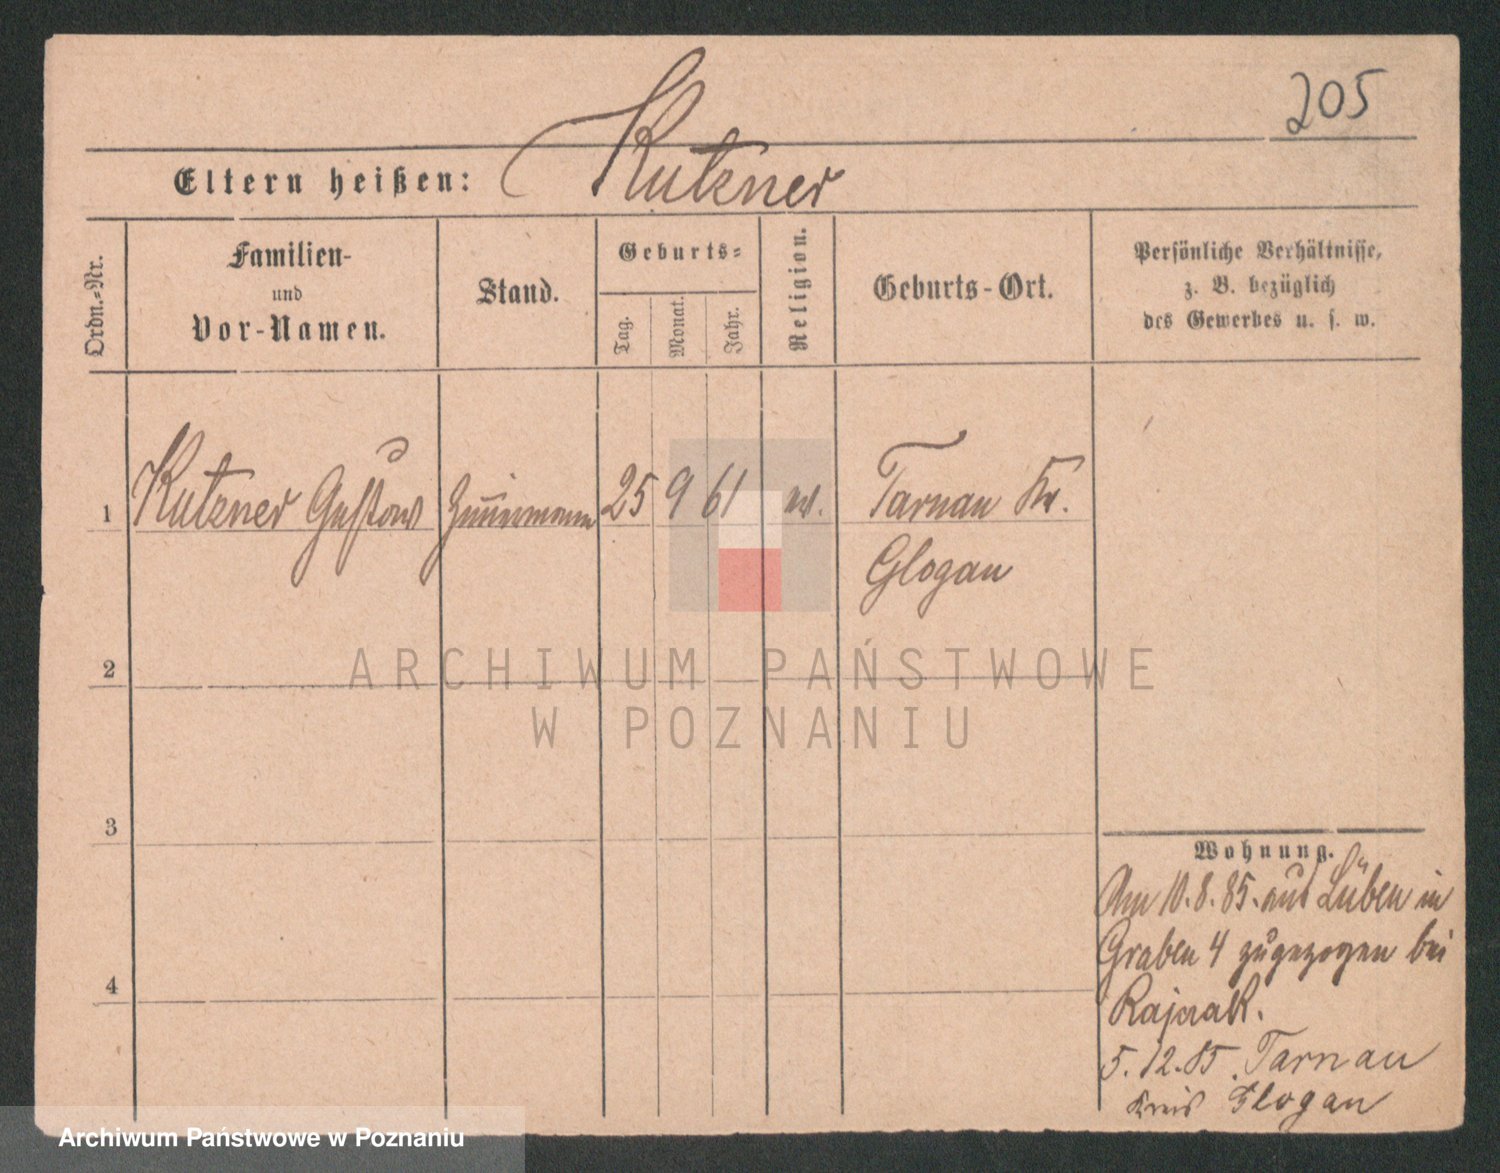 205
Eltern heißen: Kutzner
Ordn.-Nr.
Familien-
und
Vor-Namen.
Stand.
Geburts-
Tag.
Monat.
Jahr.
Religion.
Geburts-Ort.
Persönliche Verhältnisse,
z. B. bezüglich
des Gewerbes u. s. w.
1 Kutzner Gustav Zimmermann 25 9 61 Tarnau Kr.
Glogau
2
ARCHIWUM PAŃSTWOWE
W POZNANIU
3
4
Wohnung.
Am 10.8.85. aus Lüben in
Graben 4 zugezogen bei
Rajczak.
5.12.85. Tarnau
Kreis Glogau
Archiwum Państwowe w Poznaniu